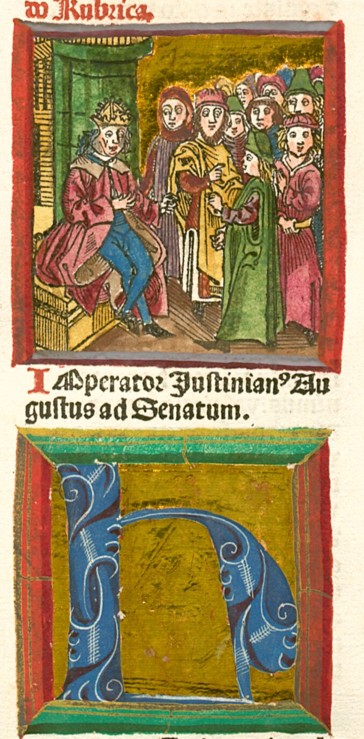 ꝛo Rubrica.
IMperator Iustinianꝰ Au
gustus ad Senatum.
h